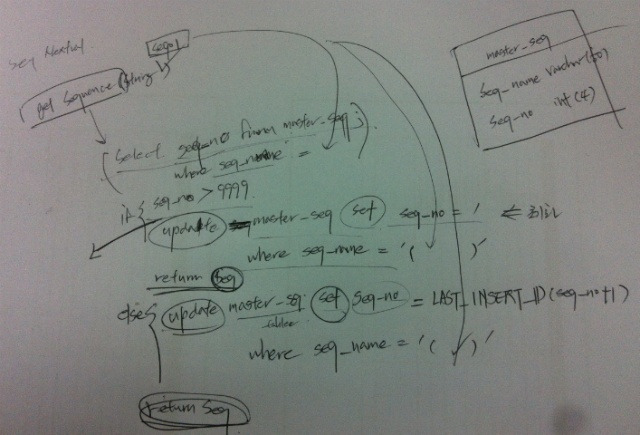 seq
seq1
get Sequence (String
master_seq
seq_name varchar(50)
seq-no int(4)
(select seq-no from master_seq;)
where seq_name =
if { seq_no > 9999
update master-seq set seq_no = '
where seq_name = '( )'
return seq
else { update master-sq set seq_no = LAST_INSERT_ID(seq-no+1)
where seq_name = '( )'
return seq